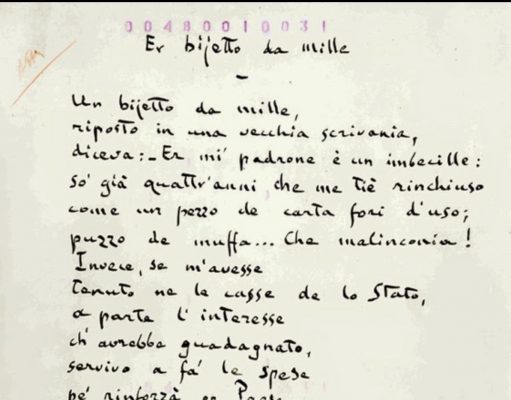 00480010031
Er bijetto da mille
Un bijetto da mille,
riposto in una vecchia scrivania,
diceva: - Er mi' padrone è un imbecille:
só già quattr'anni che me tiè rinchiuso
come un pezzo de carta fori d'uso;
puzzo de muffa... Che malinconia!
Invece, se m'avesse
tenuto ne le casse de lo Stato,
a parte l'interesse
ch'avrebbe guadagnato,
servivo a fà le spese
pé rinforzà er